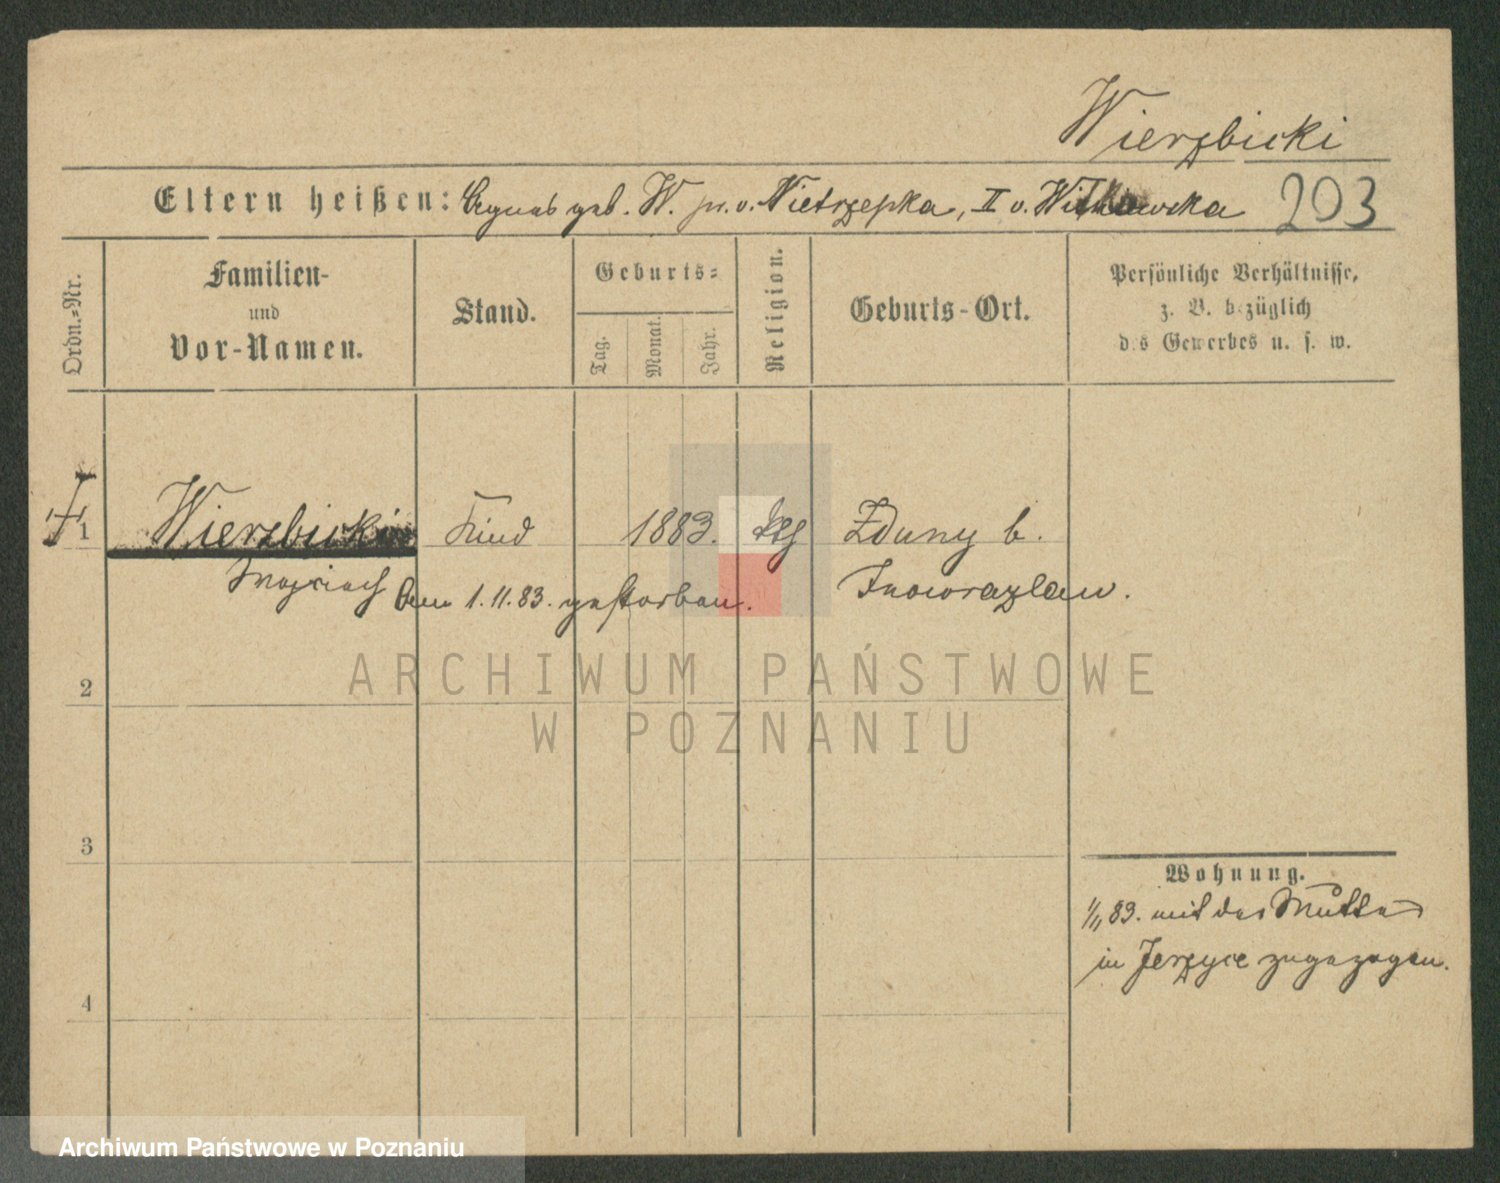 Wierzbicki
Eltern heißen: Agnes geb. W. pr. v. Nietrzepka, II v. Witkowska 203
Ordn.-Nr.
Familien-
und
Vor-Namen.
Stand.
Geburts-
Tag.
Monat.
Jahr.
Religion.
Geburts-Ort.
Persönliche Verhältnisse,
z. B. bezüglich
des Gewerbes u. s. w.
1 Wierzbicki Kind 1883. ktg Zduny b.
am 1.11.83. gestorben. Inowrazlaw.
2
3
4
Wohnung.
1/11 83. mit der Mutter
in Jerzyce zugezogen.
ARCHIWUM PAŃSTWOWE
W POZNANIU
Archiwum Państwowe w Poznaniu